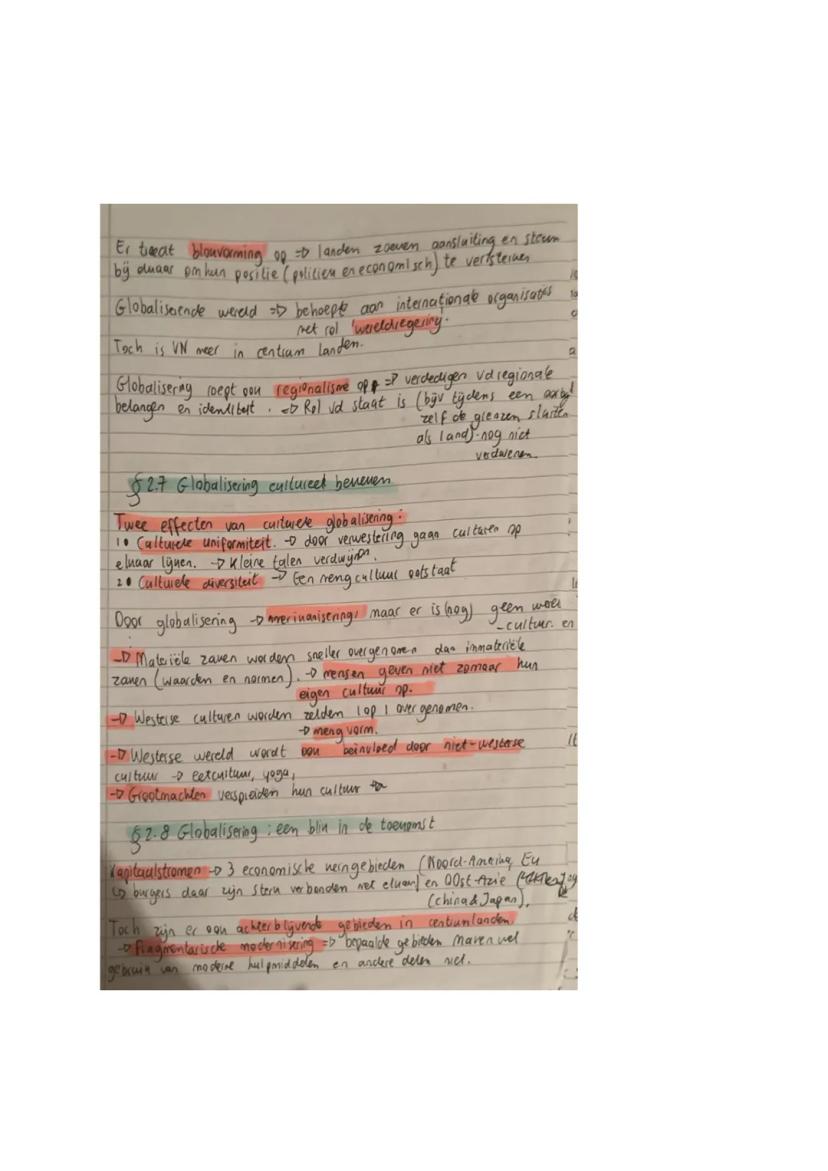 Er treedt blokvorming op => landen zoeken aansluiting en steun
bij elkaar om hun positie (politiek en economisch) te versterken
Globaliserende wereld => behoefte aan internationale organisaties
met rol 'wereldregering'.
Toch is VN meer in centrum landen.
Globalisering roept ook regionalisme op => verdedigen vd regionale
belangen en identiteit. => Rol vd staat is (bijv tijdens een
zelf de grenzen sluiten
als land) nog niet
verdwenen.
§ 2.7 Globalisering cultureel bekeken
Twee effecten van culturele globalisering:
1. Culturele uniformiteit. -> door verwestering gaan culturen op
elkaar lijken. -> Kleine talen verdwijnen.
2. Culturele diversiteit -> Een mengcultuur ontstaat
Door globalisering -> amerikanisering, maar er is (nog) geen
-cultuur. en
-> Materiële zaken worden sneller overgenomen dan immateriële
zaken (waarden en normen). -> mensen geven niet zomaar hun
eigen cultuur op.
-> Westerse culturen worden zelden 1 op 1 overgenomen.
-> mengvorm.
-> Westerse wereld wordt ook beïnvloed door niet-westerse
cultuur -> eetcultuur, yoga,
-> Grootmachten verspreiden hun cultuur
§ 2.8 Globalisering: een blik in de toekomst
Kapitaalstromen -> 3 economische kerngebieden (Noord-Amerika, EU
-> burgers daar zijn sterk verbonden met elkaar) en Oost-Azie
(China & Japan).
Toch zijn er ook achterblijvende gebieden in centrumlanden.
-> Fragmentarische modernisering => bepaalde gebieden maken wel
gebruik van moderne hulpmiddelen en andere delen niet.